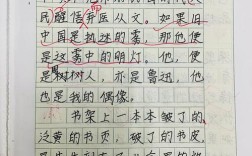 民醒悟弃医从文。如果旧
中国是迷的雾,那他便
是这雾中的明灯。他,便
是树树人,亦是鲁迅,他
也是我的偶像。
书架上一本本破了的,
泛黄的书页,破了的书皮,